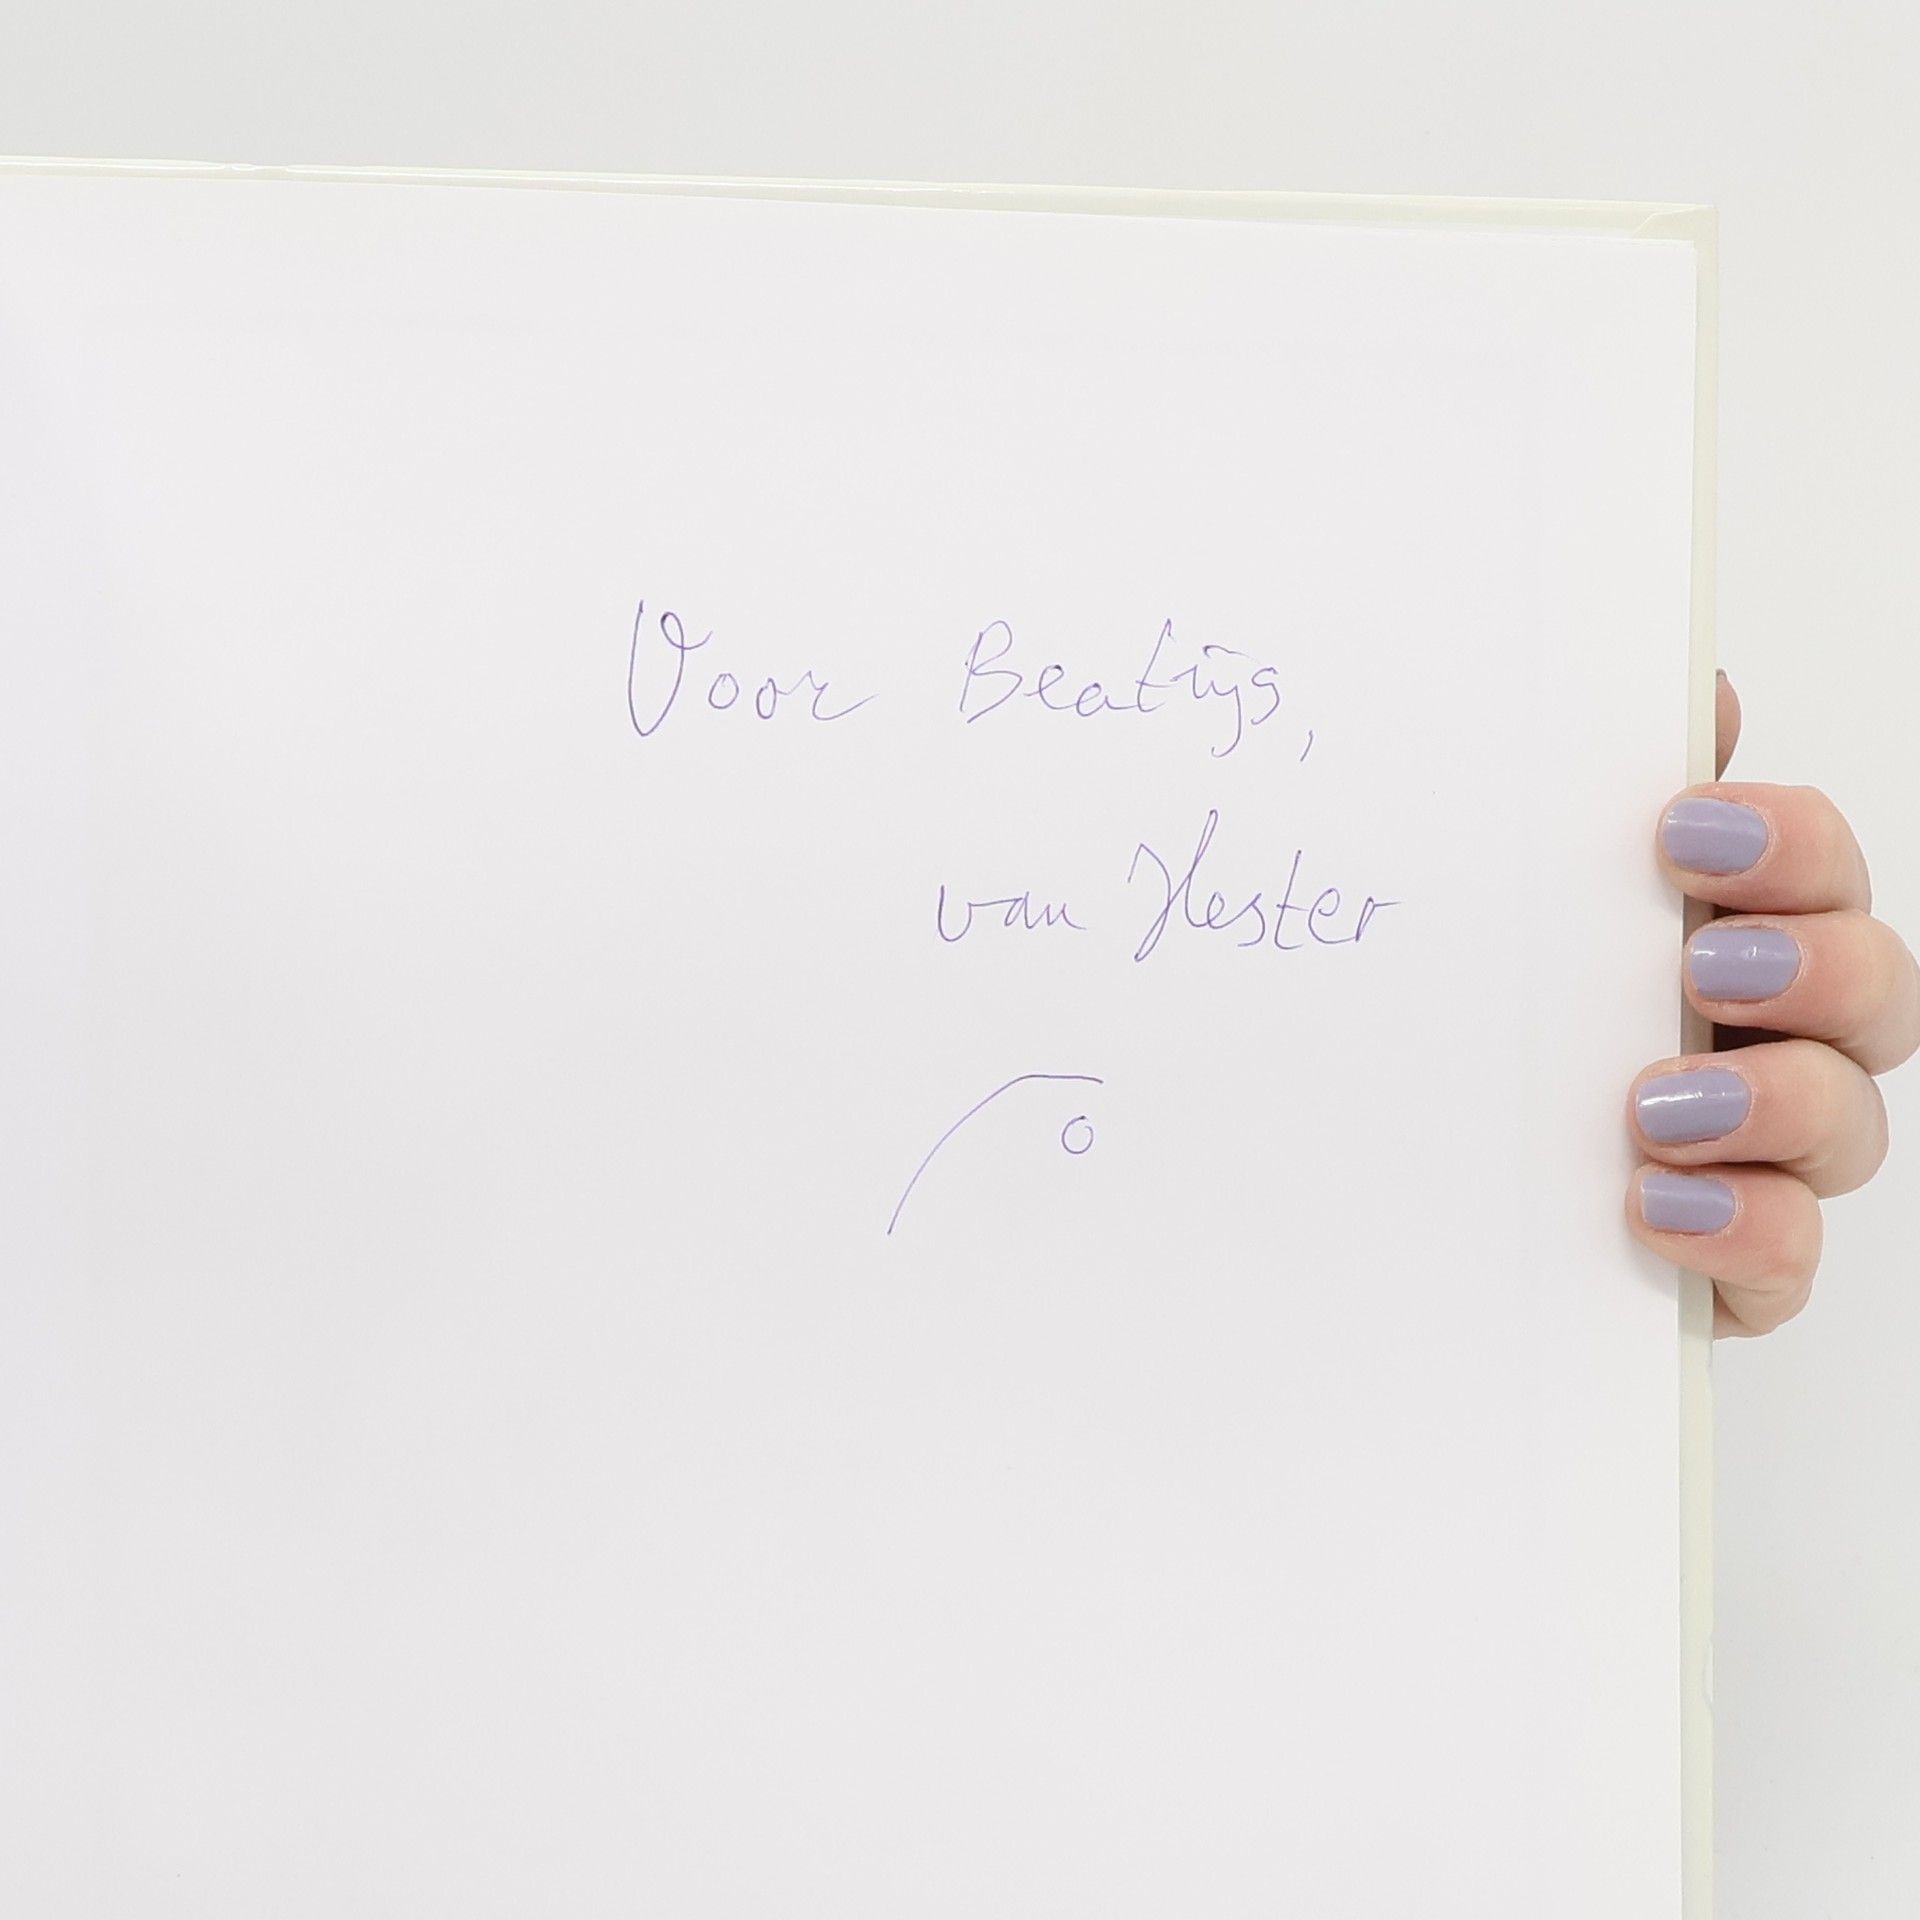 Voor Beatrijs,
van Hester